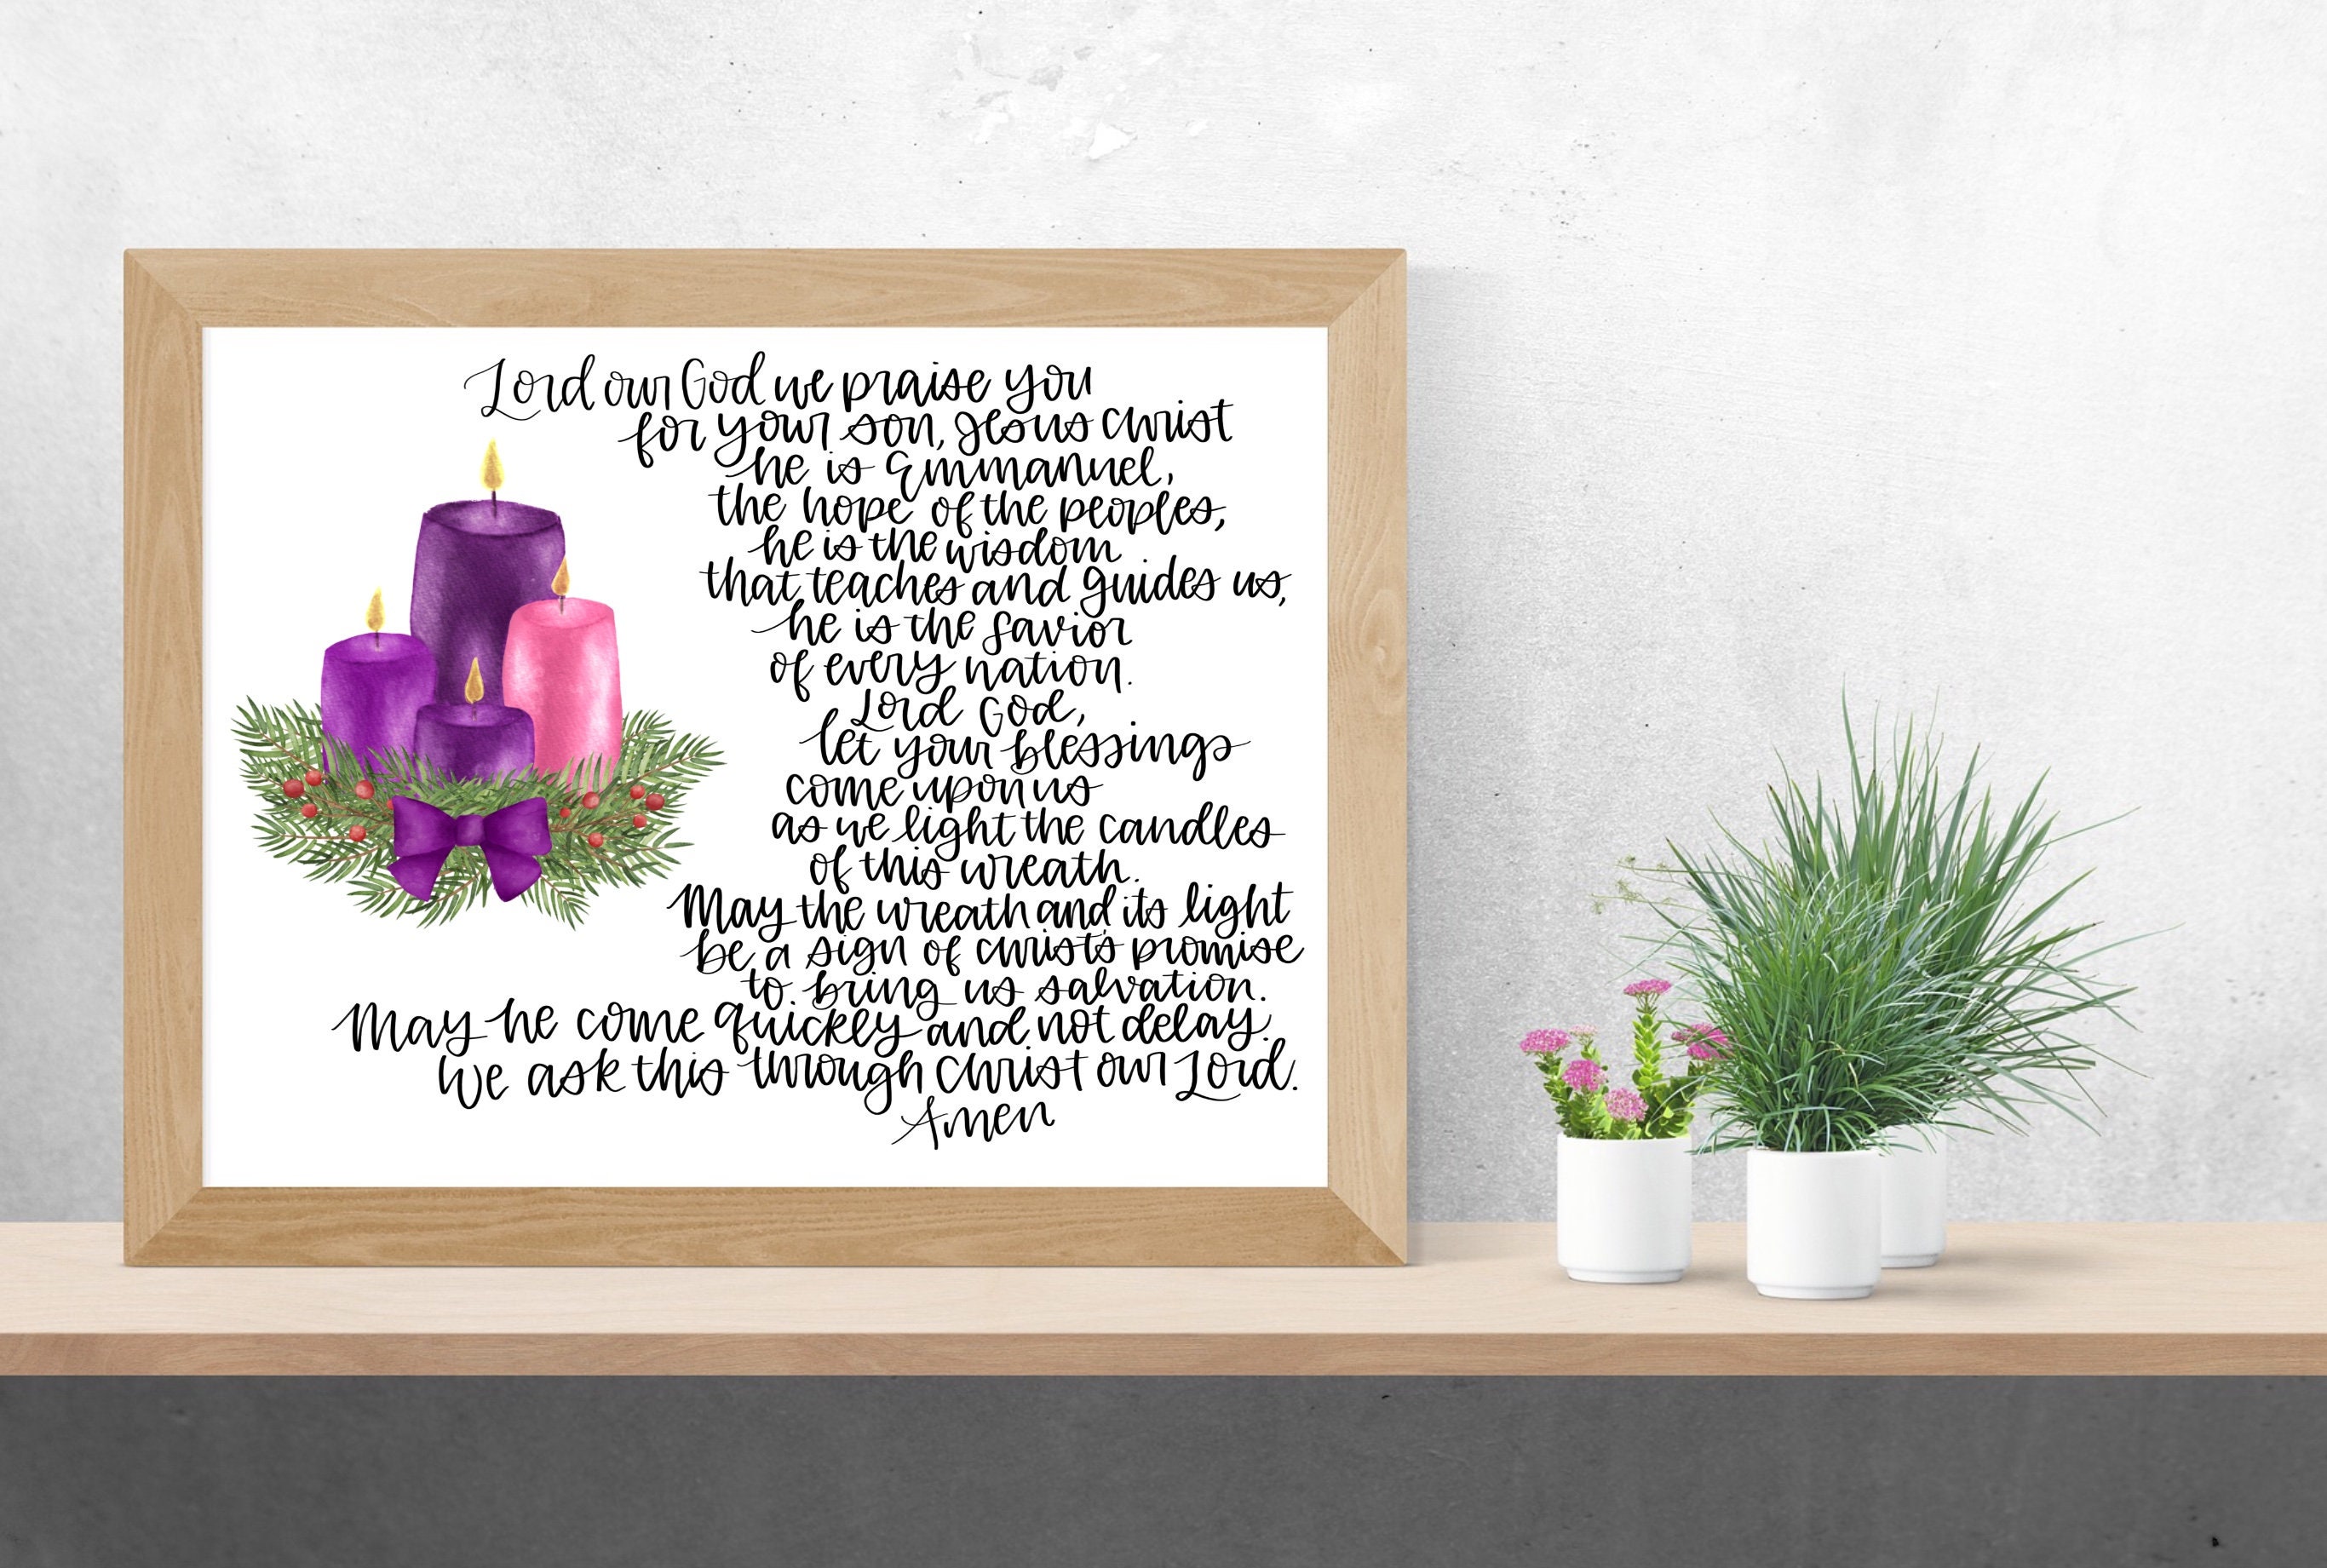 Lord our God we praise you
for your son, Jesus Christ
he is Emmanuel,
the hope of the peoples,
he is the wisdom
that teaches and guides us,
he is the savior
of every nation.
Lord God,
let your blessings
come upon us
as we light the candles
of this wreath.
May the wreath and its light
be a sign of christ's promise
to bring us salvation.
May he come quickly and not delay.
We ask this through Christ our Lord.
Amen